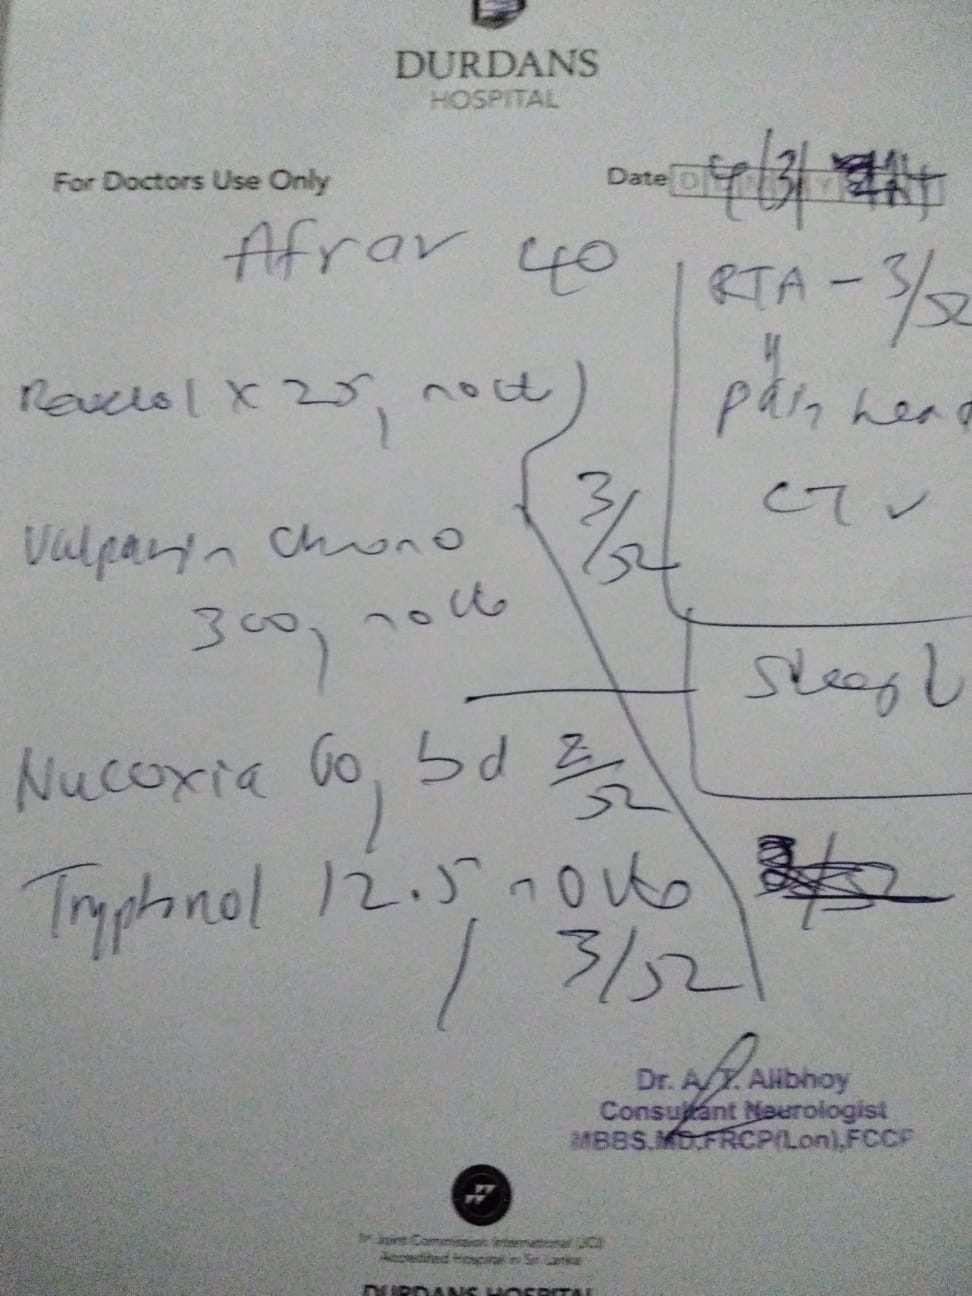 DURDANS
HOSPITAL
For Doctors Use Only
Date
Afrar 40
RTA - 3/52
pain head
CT ✓
x 25, nocte
Valparin Chrono
300, nocte
3/52
Sleep ↓
Nucoxia 60, bd 2/52
Tryptanol 12.5 nocte
3/52
Dr. A. T. Alibhoy
Consultant Neurologist
MBBS.MD.FRCP(Lon),FCCP
1st Joint Commission International (JCI)
Accredited Hospital in Sri Lanka
DURDANS HOSPITAL